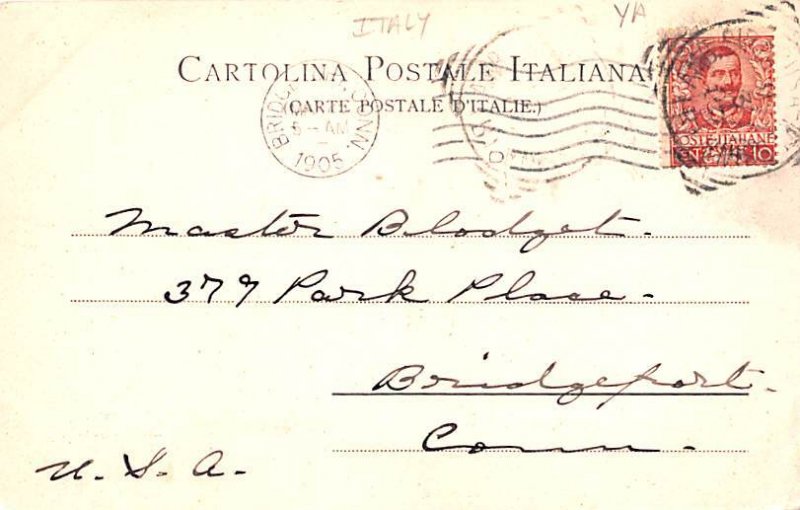 ITALY YA
CARTOLINA POSTALE ITALIANA
(CARTE POSTALE D'ITALIE.)
CONN.
5-AM
1905
POSTE ITALIANE
10
Master Blodget.
379 Park Place.
Bridgeport.
Conn.
U. S. A.